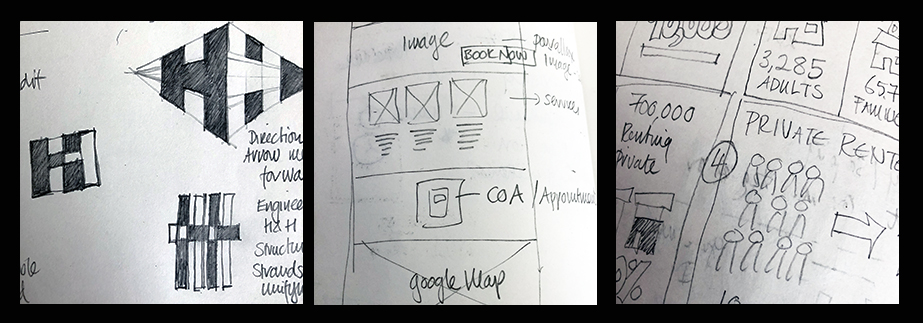 Direction
Arrow
forwa
Enginee
H&H
Structu
Strands
unifyin
Image
BOOK NOW
Image
services
COA / Appointment
google Map
10,000
3,285
ADULTS
657
FAMILI
700,000
Renting
Private
PRIVATE RENTE
4
%